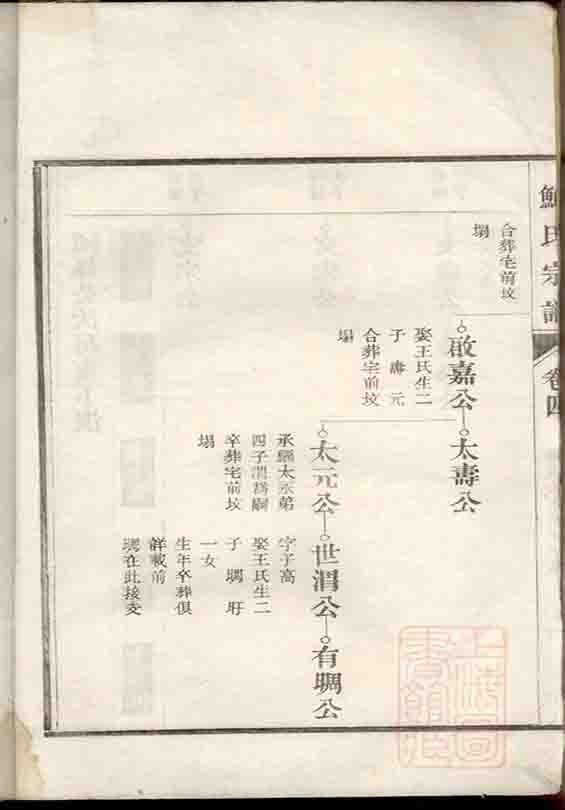 鮑氏宗譜
卷四
合葬宅前坟
塲
啟嘉公
娶王氏生二
子 壽 元
合葬宅前坟
塲
太壽公
太元公
承繼太永弟
四子渭爲嗣
卒葬宅前坟
塲
世渭公
字子高
娶王氏生二
子 堈 㘰
一女
生年卒葬俱
詳載前
堈在此接支
有堈公
上海圖
書館藏